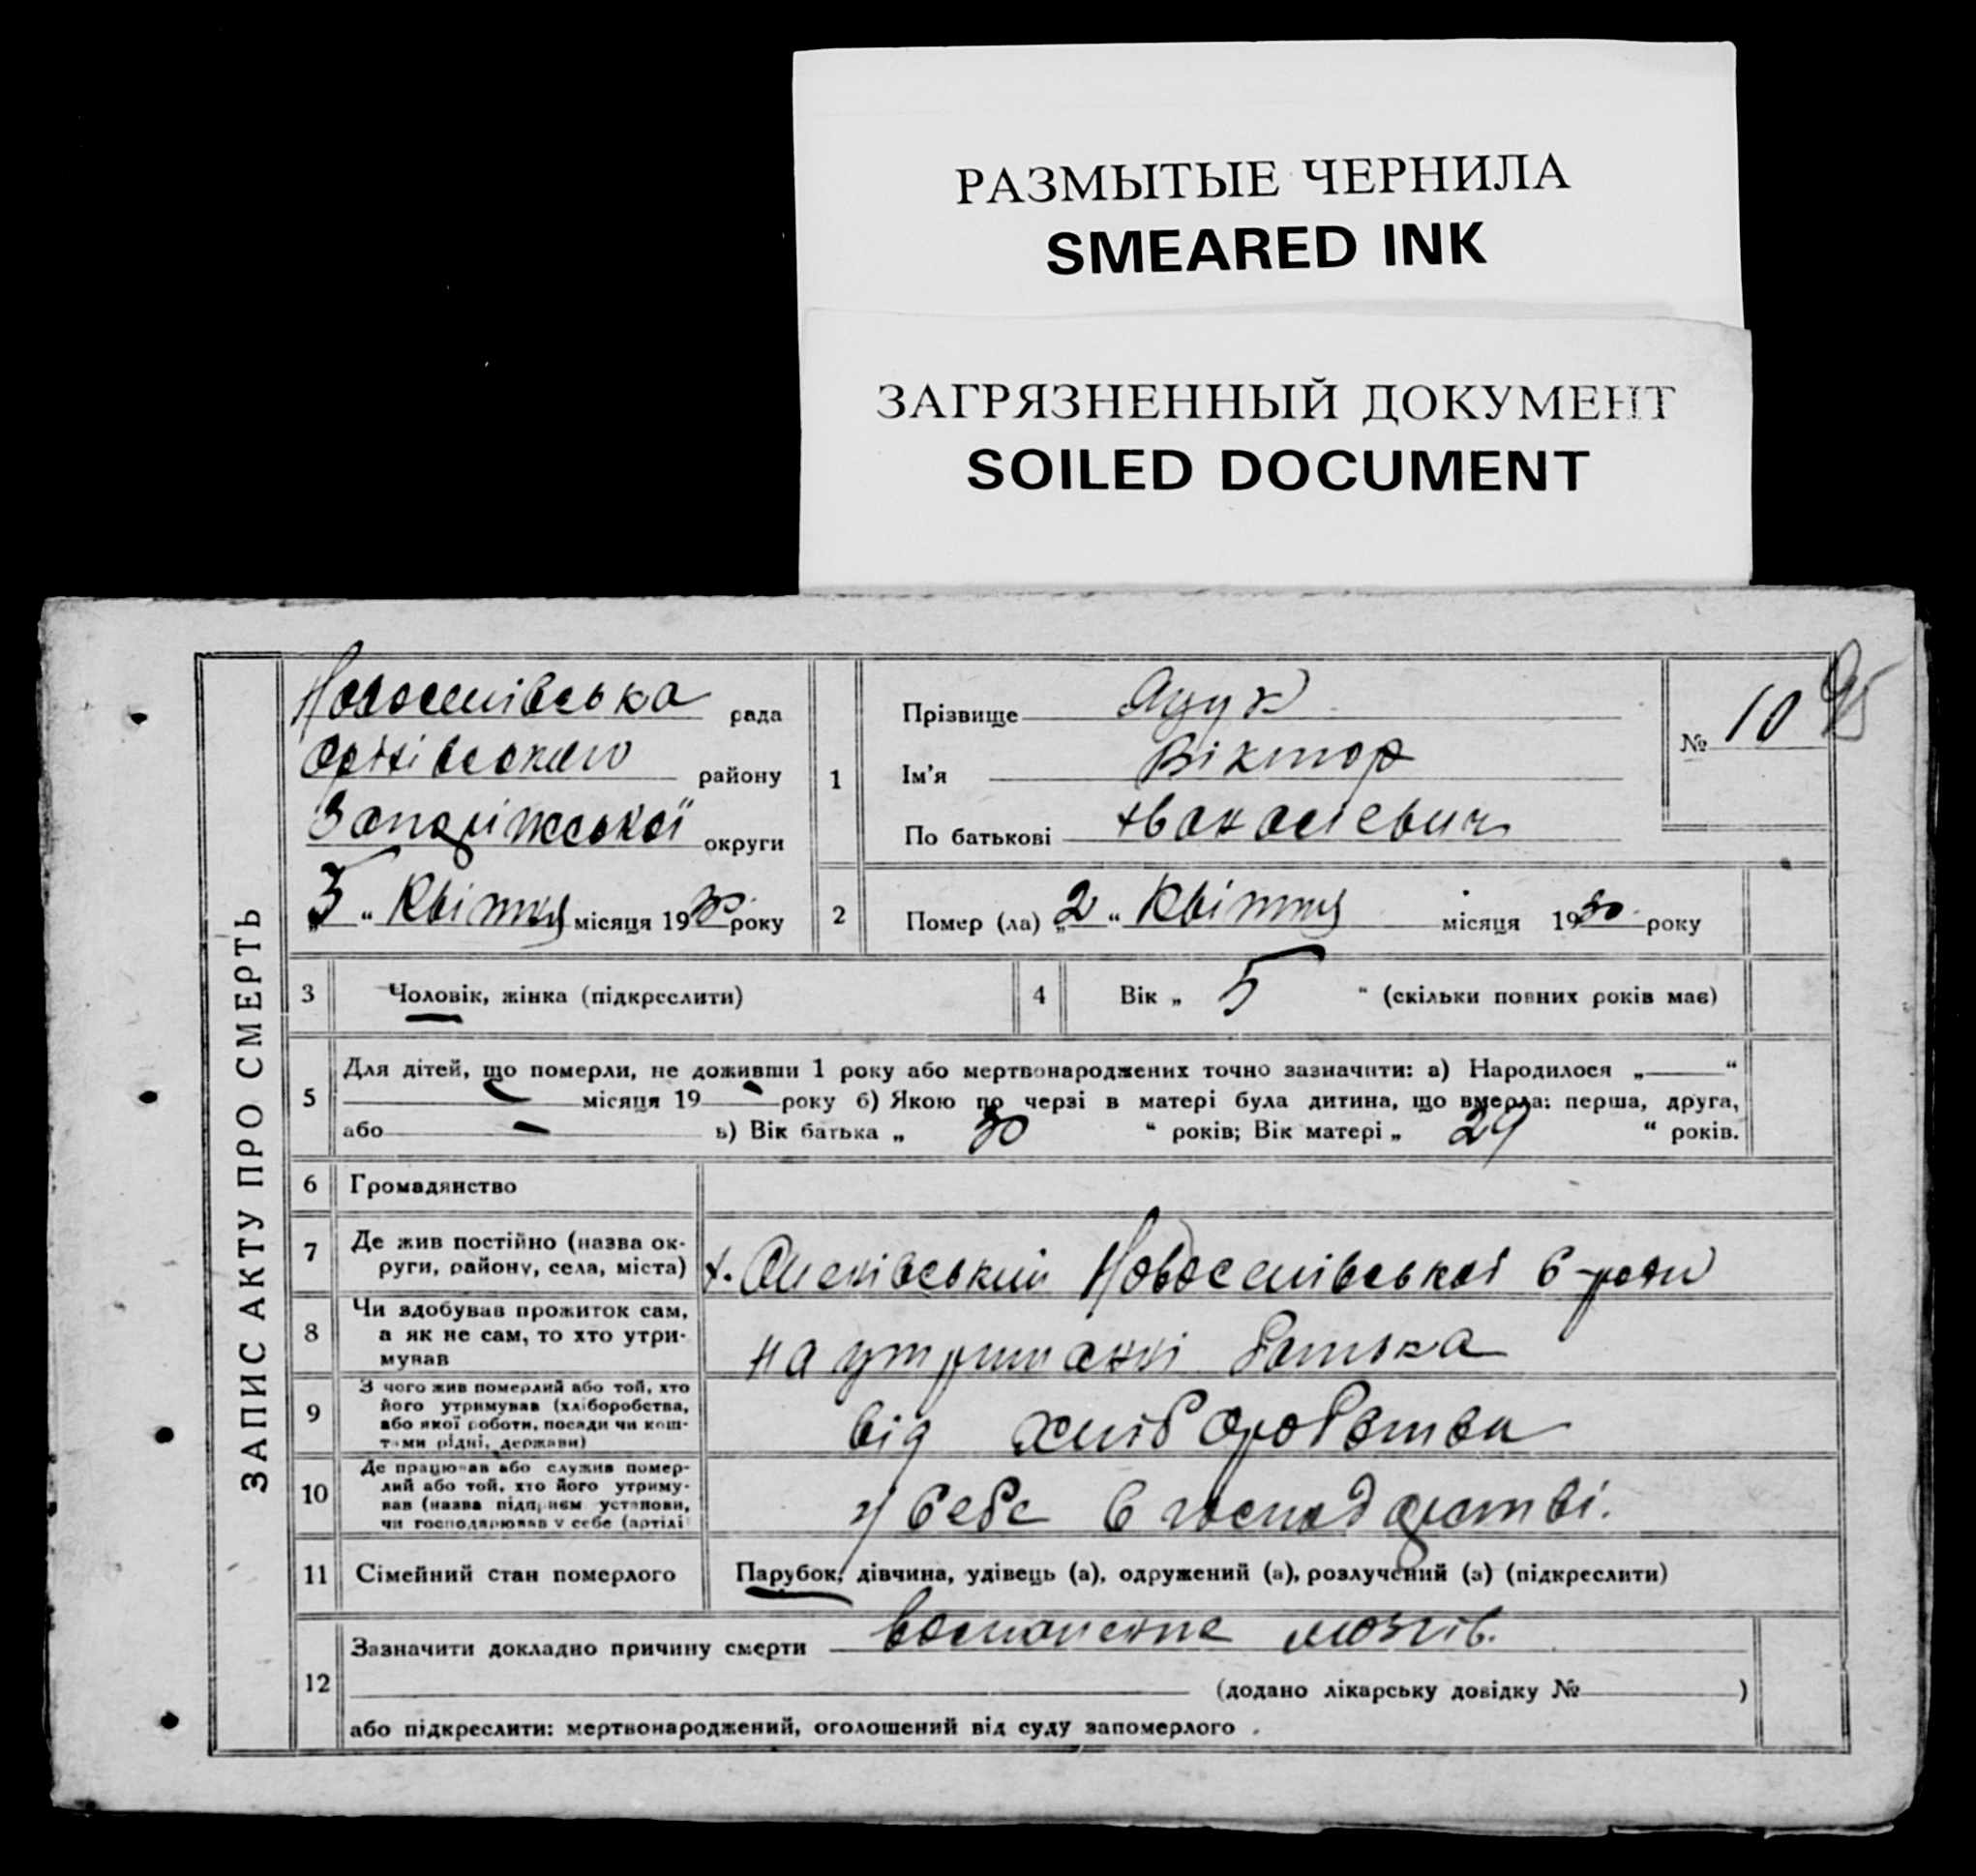 РАЗМЫТЫЕ ЧЕРНИЛА
SMEARED INK
ЗАГРЯЗНЕННЫЙ ДОКУМЕНТ
SOILED DOCUMENT
ЗАПИС АКТУ ПРО СМЕРТЬ
Новоселівська рада
Оріхівського району
Запоріжської округи
„5“ Квітня місяця 1930 року
1
Прізвище Яцук
Ім’я Віктор
По батькові
№ 10
2 Помер (ла) „2“ Квітня місяця 1930 року
3 Чоловік, жінка (підкреслити)
4 Вік „ 5 “ (скільки повних років має)
5 Для дітей, що померли, не доживши 1 року або мертвонароджених точно зазначити: а) Народилося „——“
місяця 19 — року б) Якою по черзі в матері була дитина, що вмерла: перша, друга,
або — в) Вік батька „ 30 “ років; Вік матері „ 29 “ років.
6 Громадянство
7 Де жив постійно (назва ок-
руги, району, села, міста) х. Новоселівської с-ради
8 Чи здобував прожиток сам,
а як не сам, то хто утри-
мував на утриманні батька
9 З чого жив померлий або той, хто
його утримував (хліборобства,
або якої роботи, посади чи кош-
тами рідні, держави) від хліборобства
10 Де працював або служив помер-
лий або той, хто його утриму-
вав (назва підприєм установи,
чи господарював у себе (артілі у себе в господарстві.
11 Сімейний стан померлого Парубок, дівчина, удівець (а), одружений (а), розлучений (а) (підкреслити)
12 Зазначити докладно причину смерти воспаление мозгів.
(додано лікарську довідку №——)
або підкреслити: мертвонароджений, оголошений від суду запомерлого .